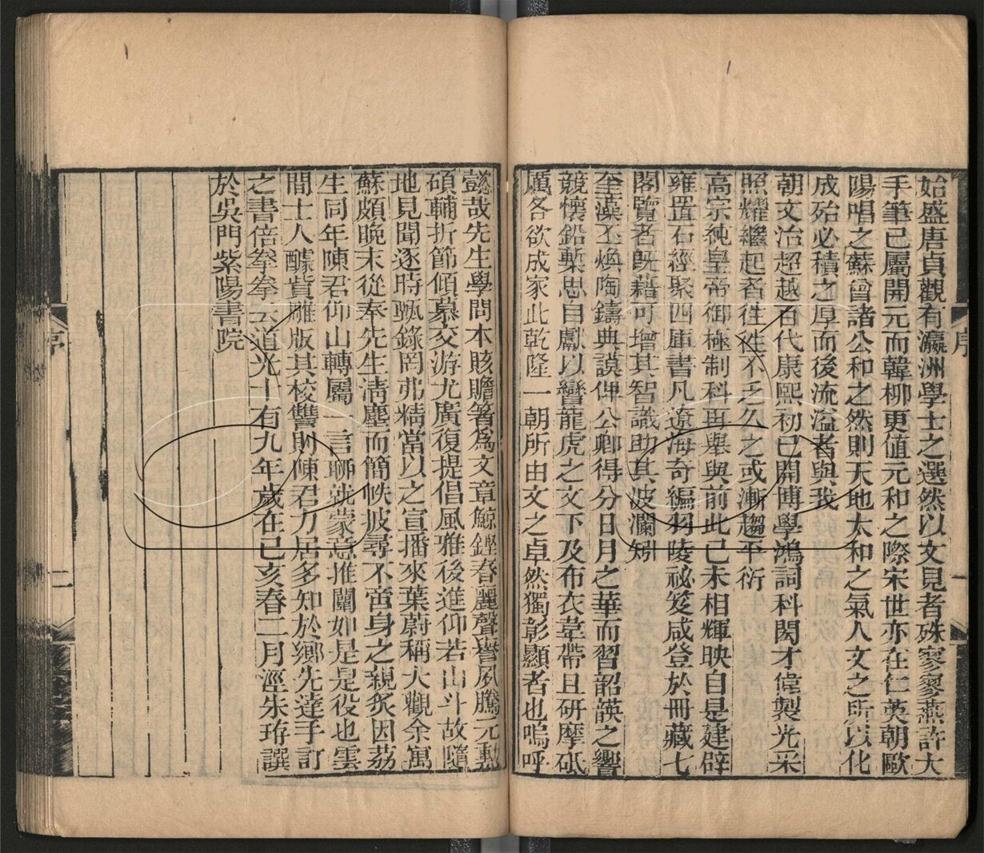 始盛唐貞觀有瀛洲學士之選然以文見者殊寥寥燕許大
手筆已屬開元而韓柳更值元和之際宋世亦在仁英朝歐
陽唱之蘇曾諸公和之然則天地太和之氣人文之所以化
成殆必積之厚而後流溢者與我
朝文治超越百代康熙初已開博學鴻詞科閎才偉製光采
照耀繼起者往往不乏久之或漸趨平衍
高宗純皇帝御極制科再舉與前此己未相輝映自是建辟
雍置石經聚四庫書凡遼海奇編羽陵祕笈咸登於冊藏七
閣覽者旣藉可增其智識助其波瀾矧
奎藻丕煥陶鑄典謨俾公卿得分日月之華而習韶韺之響
競懷鉛槧思自獻以鬱龍虎之文下及布衣韋帶且研摩砥
厲各欲成家此乾隆一朝所由文之卓然獨彰顯者也嗚呼
懿哉先生學問本賅贍箸為文章鯨鏗春麗聲譽風騰元勳
碩輔折節傾慕交游尤廣復提倡風雅後進仰若山斗故隨
地見聞逐時甄錄罔弗精當以之宣播來葉蔚稱大觀余寓
蘇頗晚末從奉先生淸塵而簡帙披尋不啻身之親炙因荔
生同年陳君仰山轉屬一言聊就蒙意推闡如是是役也雲
間士人醵貲雕版其校讐則陳君力居多知於鄉先達手訂
之書倍拳拳云道光十有九年歲在己亥春二月涇朱珔譔
於吳門紫陽書院
序
一
序
二